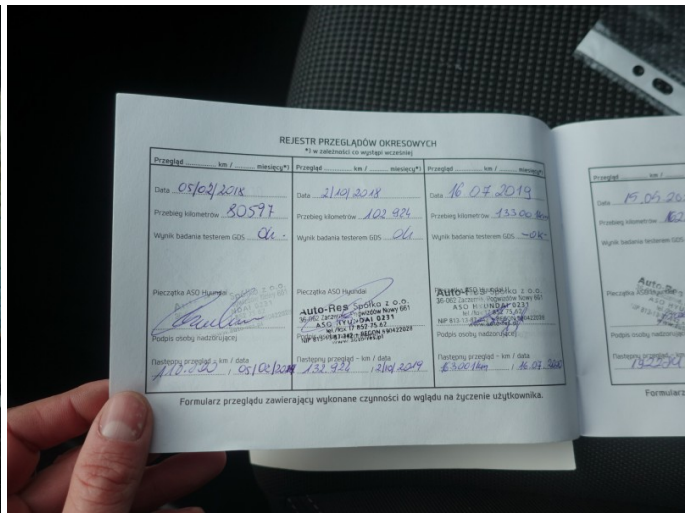 REJESTR PRZEGLĄDÓW OKRESOWYCH
*) w zależności co wystąpi wcześniej
Przegląd ............ km / ............ miesięcy*)
Data 05/02/2018
Przebieg kilometrów 80597
Wynik badania testerem GDS ok -
Pieczątka ASO Hyundai
Spółka z o.o.
Podpis osoby nadzorującej
Następny przegląd – km / data
, 05/02/2019
Przegląd ............ km / ............ miesięcy*)
Data 2/10/2018
Przebieg kilometrów 102 924
Wynik badania testerem GDS ok
Pieczątka ASO Hyundai
Auto-Res Spółka z o.o.
36-062 Zaczernie, Pogwizdów Nowy 661
ASO HYUNDAI 0231
tel./fax 17 852 75 67
Następny przegląd – km / data
132.924 , 2/10/2019
Przegląd ............ km / ............ miesięcy*)
Data 16 07 2019
Przebieg kilometrów 13300 km
Wynik badania testerem GDS -ok-
Pieczątka ASO Hyundai
Auto-Res Spółka z o.o.
36-062 Zaczernie, Pogwizdów Nowy 661
ASO HYUNDAI 0231
Podpis osoby nadzorującej
Następny przegląd – km / data
163001km , 16.07.2020
Formularz przeglądu zawierający wykonane czynności do wglądu na życzenie użytkownika.
Przegląd ............ km /
Data 15.05.20
Przebieg kilometrów
Wynik badania testerem GD
Podpis osoby nadzorują
Następny przegląd – k
Formularz